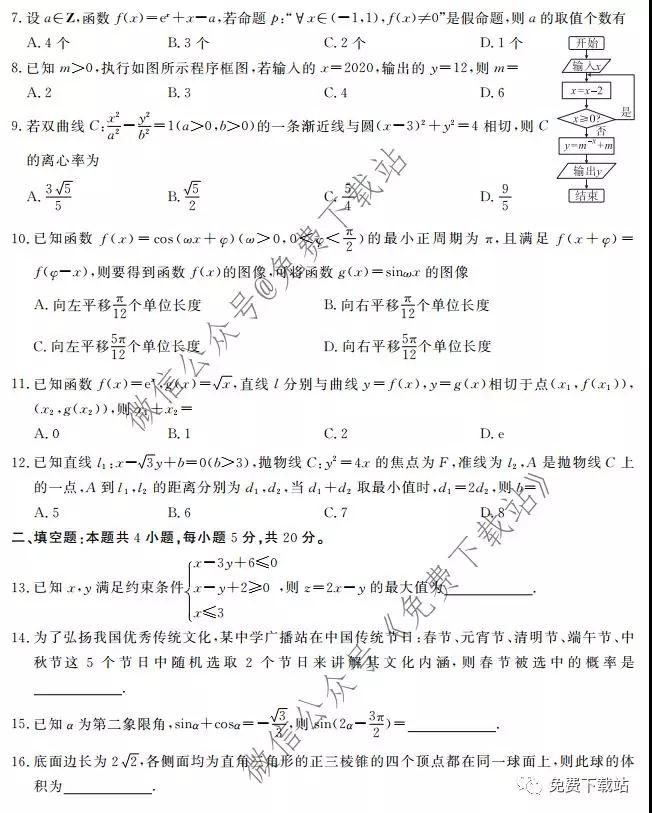 7. 设 a∈Z,函数 f(x)=eˣ+x−a,若命题 p:“∀x∈(−1,1),f(x)≠0”是假命题,则 a 的取值个数有
A. 4 个 B. 3 个 C. 2 个 D. 1 个
8. 已知 m>0,执行如图所示程序框图,若输入的 x=2020,输出的 y=12,则 m=
A. 2 B. 3 C. 4 D. 6
开始
输入x
x=x−2
x≥0?
是
否
y=m⁻ˣ+m
输出y
结束
9. 若双曲线 C:x²/a²−y²/b²=1(a>0,b>0)的一条渐近线与圆(x−3)²+y²=4 相切,则 C
的离心率为
A. 3√5/5 B. √5/2 C. 5/4 D. 9/5
10. 已知函数 f(x)=cos(ωx+φ)(ω>0,0<φ<π/2)的最小正周期为 π,且满足 f(x+φ)=
f(φ−x),则要得到函数 f(x)的图像,可将函数 g(x)=sinωx 的图像
A. 向左平移π/12个单位长度 B. 向右平移π/12个单位长度
C. 向左平移5π/12个单位长度 D. 向右平移5π/12个单位长度
11. 已知函数 f(x)=eˣ,g(x)=√x,直线 l 分别与曲线 y=f(x),y=g(x)相切于点(x₁,f(x₁)),
(x₂,g(x₂)),则 x₁+x₂=
A. 0 B. 1 C. 2 D. e
12. 已知直线 l₁:x−√3y+b=0(b>3),抛物线 C:y²=4x 的焦点为 F,准线为 l₂,A 是抛物线 C 上
的一点,A 到 l₁,l₂ 的距离分别为 d₁,d₂,当 d₁+d₂ 取最小值时,d₁=2d₂,则 b=
A. 5 B. 6 C. 7 D. 8
二、填空题:本题共 4 小题,每小题 5 分,共 20 分。
13. 已知 x,y 满足约束条件{x−3y+6≤0 x−y+2≥0 x≤3,则 z=2x−y 的最大值为________.
14. 为了弘扬我国优秀传统文化,某中学广播站在中国传统节日:春节、元宵节、清明节、端午节、中
秋节这 5 个节日中随机选取 2 个节日来讲解其文化内涵,则春节被选中的概率是
________.
15. 已知 α 为第二象限角,sinα+cosα=−√3/3,则 sin(2α−3π/2)=________.
16. 底面边长为 2√2,各侧面均为直角三角形的正三棱锥的四个顶点都在同一球面上,则此球的体
积为________.
微信公众号@免费下载站
微信公众号《免费下载站》
免费下载站